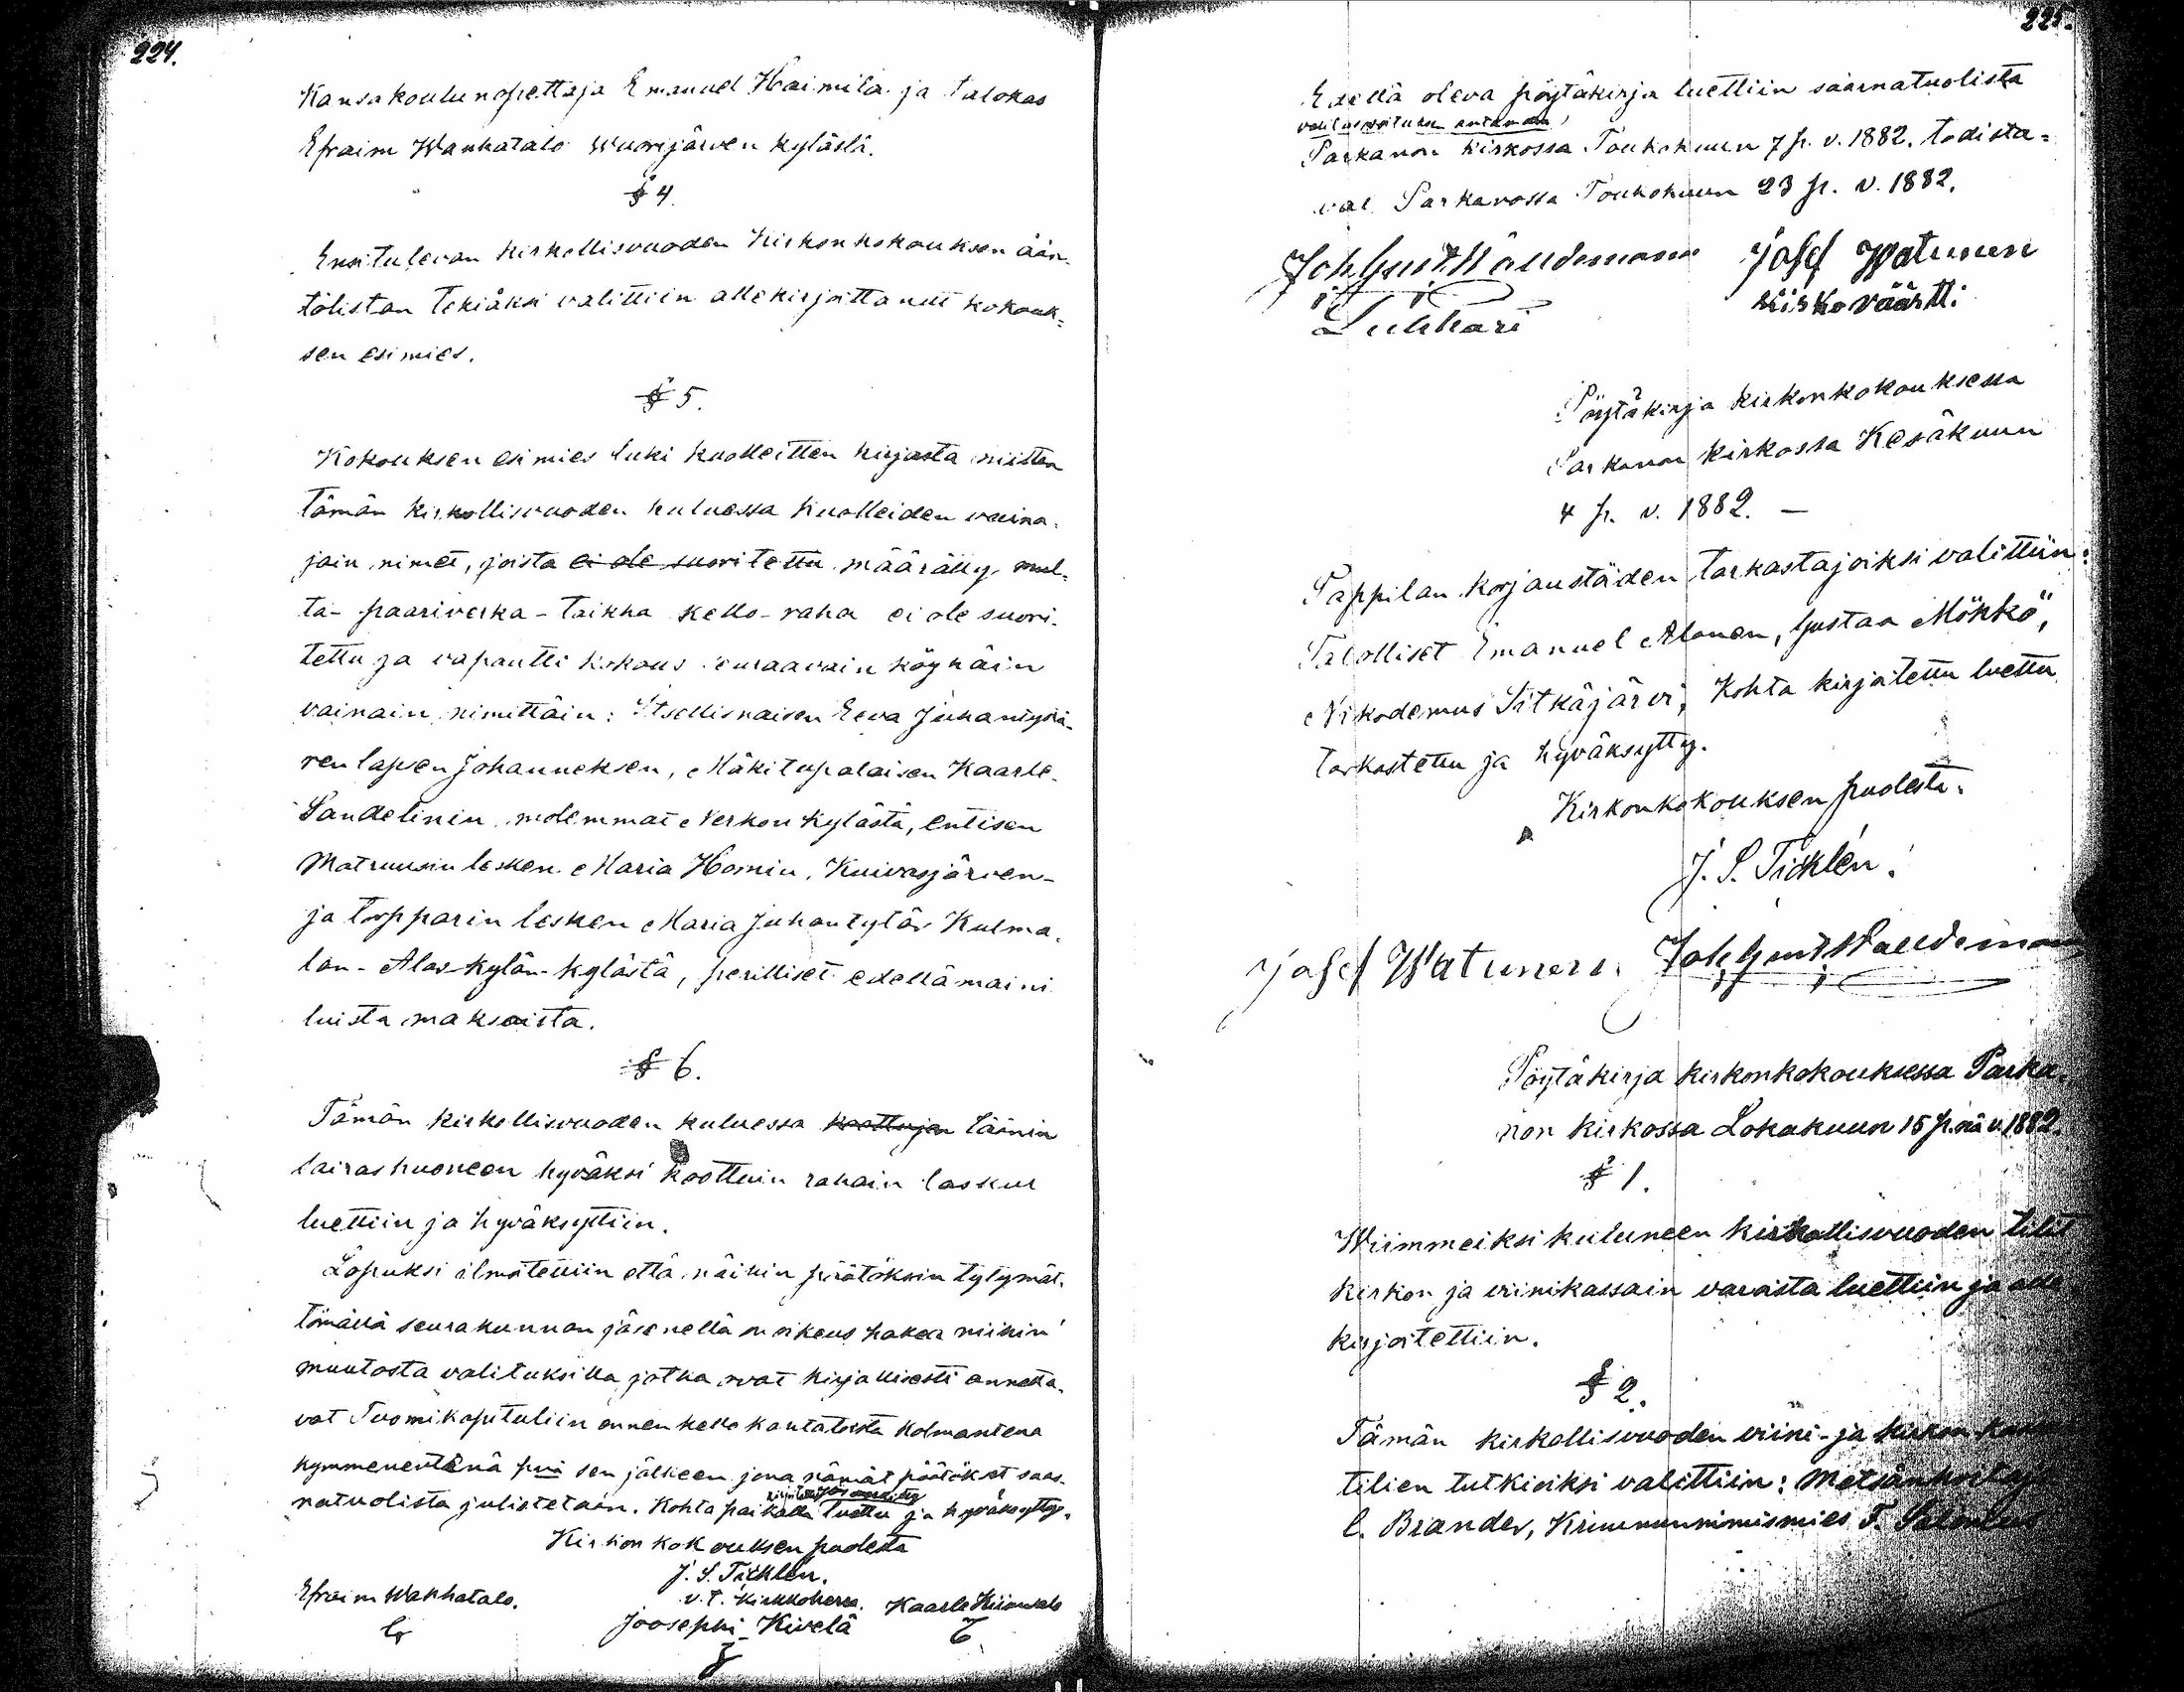 224.
Kansakoulunopettaja Emanuel Haimila ja talokas
Efraim Wanhatalo Wuorijärven kylästä.
§ 4.
Ensitulevan kirkollisvuoden Kirkonkokouksen ään-
tölistan tekiäksi valittiin allekirjoittanut kokouk-
sen esimies.
§ 5.
Kokouksen esimies luki kuolleitten kirjasta niitten
tämän kirkollisvuoden kuluessa kuolleiden vaina-
jain nimet, joista ei ole suoritettu määrätty mul-
ta- paariverka- taikka kello-raha ei ole suori-
tettu ja vapautti kokous seuraavain köyhäin
vainain nimittäin: Itsellisnaisen Eeva Juhantytä-
ren lapsen Johanneksen, Mäkitupalaisen Kaarle
Sandelinin molemmat Nerkon kylästä, entisen
Matruusin lesken Maria Homin, Kuivasjärven-
ja torpparin lesken Maria Juhantytär Kulma-
lan- Alas-kylän-kylästä, perilliset edellämaini
tuista maksoista.
§ 6.
Tämän kirkollisvuoden kuluessa koottujen läänin
lairashuoneen hyväksi koottuin rahain laskut
luettiin ja hyväksyttiin.
Lopuksi ilmoitettiin että näihin päätöksiin tytymät-
tömällä seurakunnan jäsenellä on oikeus hakea niihin
muutosta valituksilla jotka ovat kirjallisesti annetta-
vat Tuomikapituliin ennen kello kahtatoista kolmantena
kymmenentenä p:nä sen jälkeen jona nämät päätökset saar-
natuolista julistetaan. Kohta paikalla luettu ja hyväksytty.
Kirkonkokouksen puolesta
J. S. Ticklén.
v.t. kirkkoherra.
Efraim Wanhatalo.
Jooseppi Kivelä
225.
Edellä oleva pöytäkirja luettiin saarnatuolista
Parkanon kirkossa Toukokuun 7 p. v. 1882. todista-
vat Parkanossa Toukokuun 23 p. v. 1882.
Josef Watunen
Kirkoväärtti
Lukkari
Pöytäkirja kirkonkokouksessa
Parkanon kirkossa Kesäkuun
4 p. v. 1882. —
Pappilan korjaustöiden tarkastajoiksi valittiin:
Talolliset Emanuel Alanen, Gustaa Mökkö,
Nikodemus Sitkäjärvi, Kohta kirjoitettu luettu
tarkastettu ja hyväksytty.
Kirkonkokouksen puolesta.
J. S. Ticklén.
Josef Watunen.
Pöytäkirja kirkonkokouksessa Parka-
non kirkossa Lokakuun 15 p.nä v. 1882.
§ 1.
Wiimmeiksi kuluneen kirkollisvuoden tilit
kirkon ja viinikassain varoista luettiin ja alle
kirjoitettiin.
§ 2.
Tämän kirkollisvuoden viini- ja kirkon
tilien tutkioiksi valittiin: Metsänhoitaja
C. Brander, Kruununnimismies F.